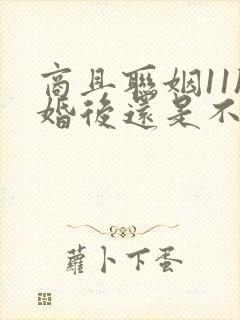 商且聯姻11
婚後還是不
蘿卜下蛋